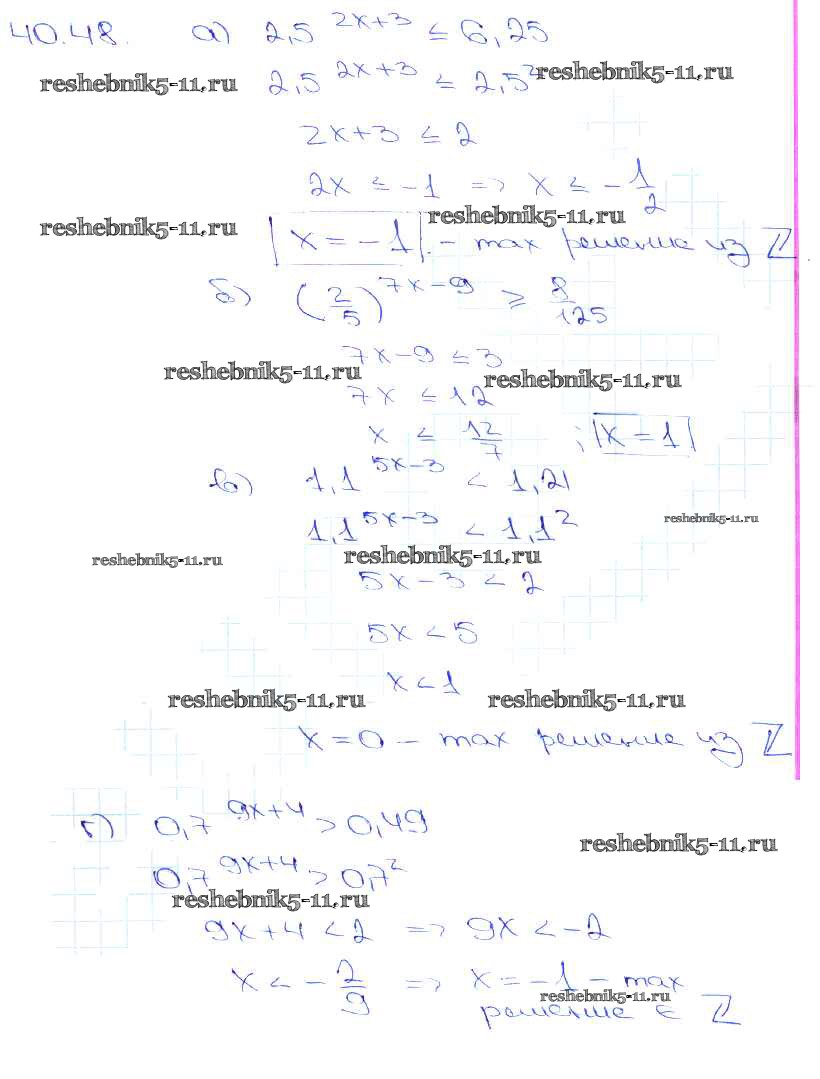 40.48. а) 2,5^(2x+3) ≤ 6,25
reshebnik5-11.ru 2,5^(2x+3) ≤ 2,5^2 reshebnik5-11.ru
2x+3 ≤ 2
2x ≤ -1 => x ≤ -1/2
reshebnik5-11.ru reshebnik5-11.ru
|x = -1|. - max решение из ℤ.
б) (2/5)^(7x-9) ≥ 8/125
7x-9 ≤ 3
reshebnik5-11.ru reshebnik5-11.ru
7x ≤ 12
x ≤ 12/7 ; |x = 1|
в) 1,1^(5x-3) < 1,21
1,1^(5x-3) < 1,1^2 reshebnik5-11.ru
reshebnik5-11.ru reshebnik5-11.ru
5x-3 < 2
5x < 5
x < 1
reshebnik5-11.ru reshebnik5-11.ru
x = 0 - max решение из ℤ
г) 0,7^(9x+4) > 0,49
reshebnik5-11.ru
0,7^(9x+4) > 0,7^2
reshebnik5-11.ru
9x+4 < 2 => 9x < -2
x < -2/9 => x = -1 - max
reshebnik5-11.ru
решение ∈ ℤ